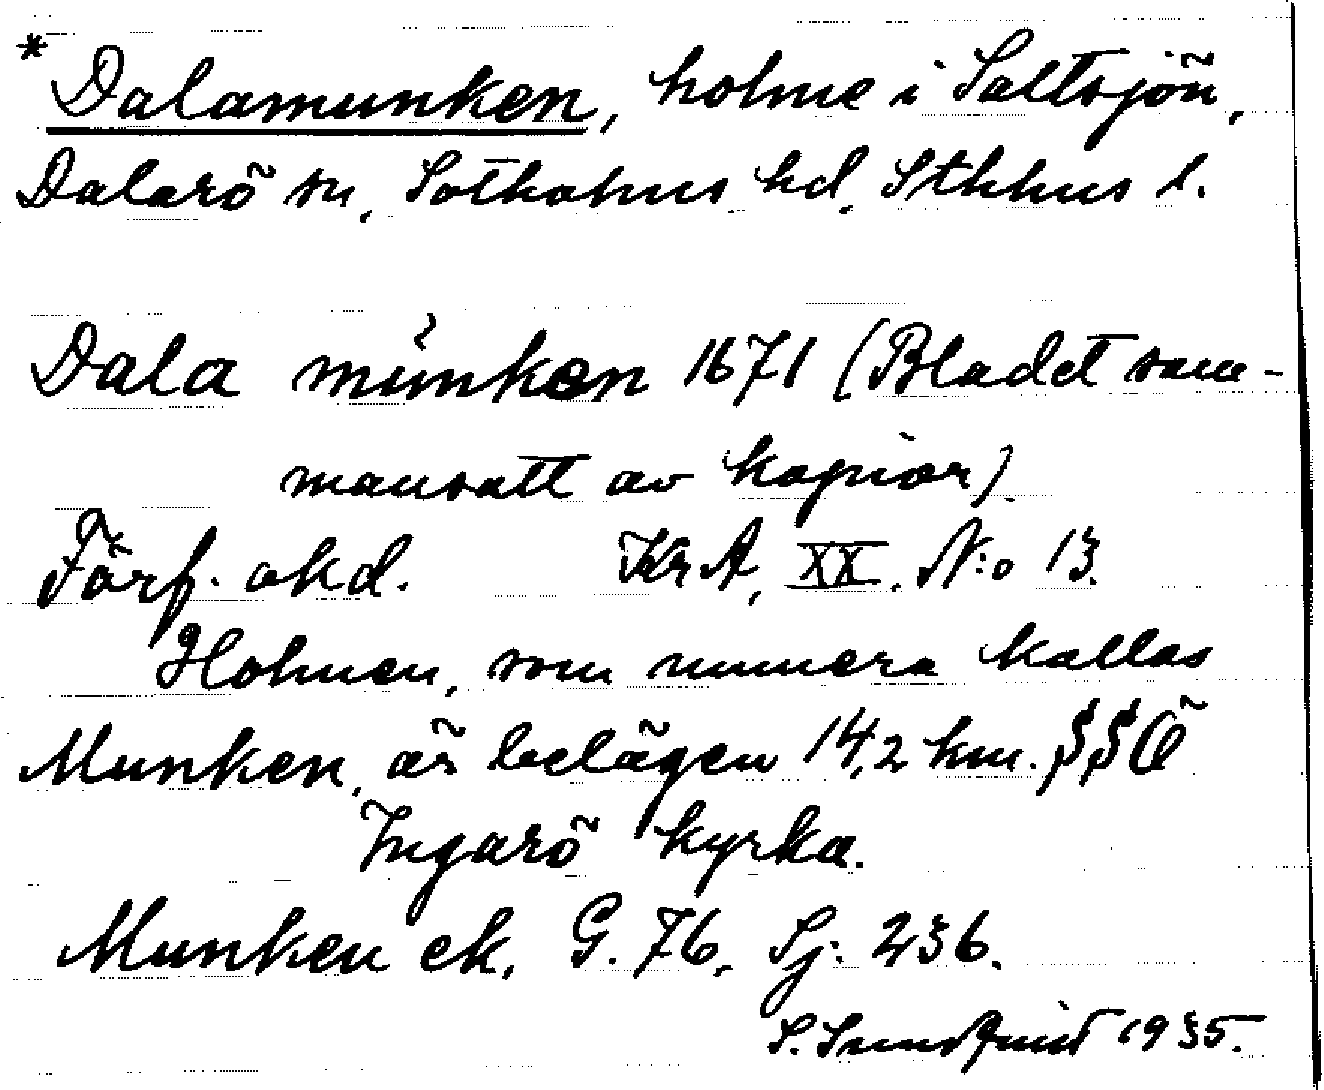 * Dalamunken, holme i Saltsjön,
Dalarö sn, Sotholms hd, Sthlms l.
Dala münken 1671 (Bladet sam-
mansatt av kopior).
Förf. okd. KrA, XX. N:o 13.
Holmen, som numera kallas
Munken, är belägen 14,2 km. SSÖ
Ingarö kyrka.
Munken ek. G. 76, Sj: 236.
S. Sundquist 1935.